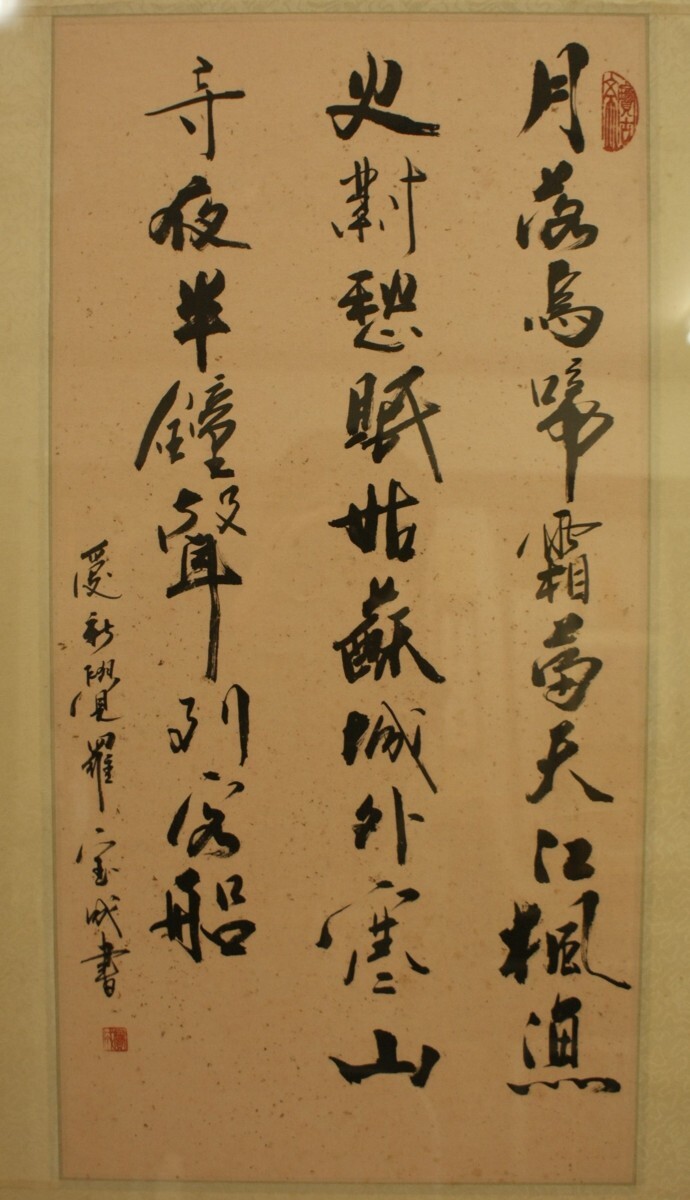 月落烏啼霜滿天江楓漁
火對愁眠姑蘇城外寒山
寺夜半鐘聲到客船
愛新覺羅宝成書